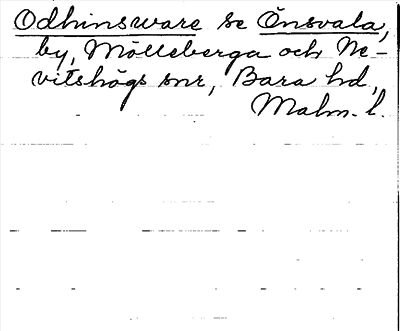 Odhinsware se Önsvala,
by, Mölleberga och Ne-
vitshögs snr, Bara hd,
Malm. l.